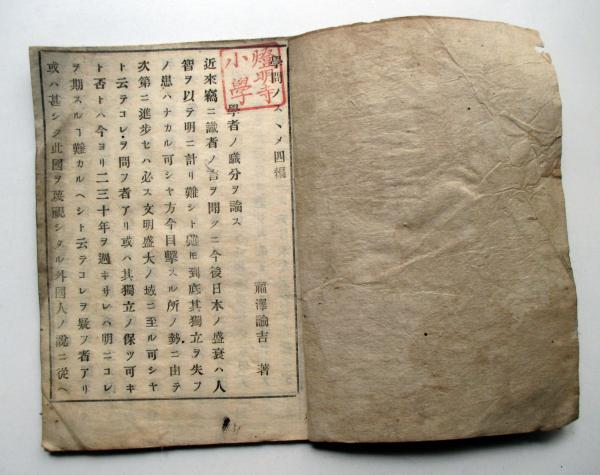 學問ノスヽメ四編
福澤諭吉 著
學者ノ職分ヲ論ス
近來竊ニ識者ノ言ヲ聞クニ今後日本ノ盛衰ハ人
智ヲ以テ明ニ計リ難シト雖𪜈到底其獨立ヲ失フ
ノ患ハナカル可シヤ方今目擊スル所ノ勢ニ由テ
次第ニ進歩セハ必ス文明盛大ノ域ニ至ル可シヤ
ト云テコレヲ問フ者アリ或ハ其獨立ノ保ツ可キ
ト否トハ今ヨリ二三十年ヲ過キサレハ明ニコレ
ヲ期スルヿ難カルヘシト云テコレヲ疑フ者アリ
或ハ甚シク此國ヲ蔑視シタル外國人ノ說ニ從ヘ
燈明寺
小學